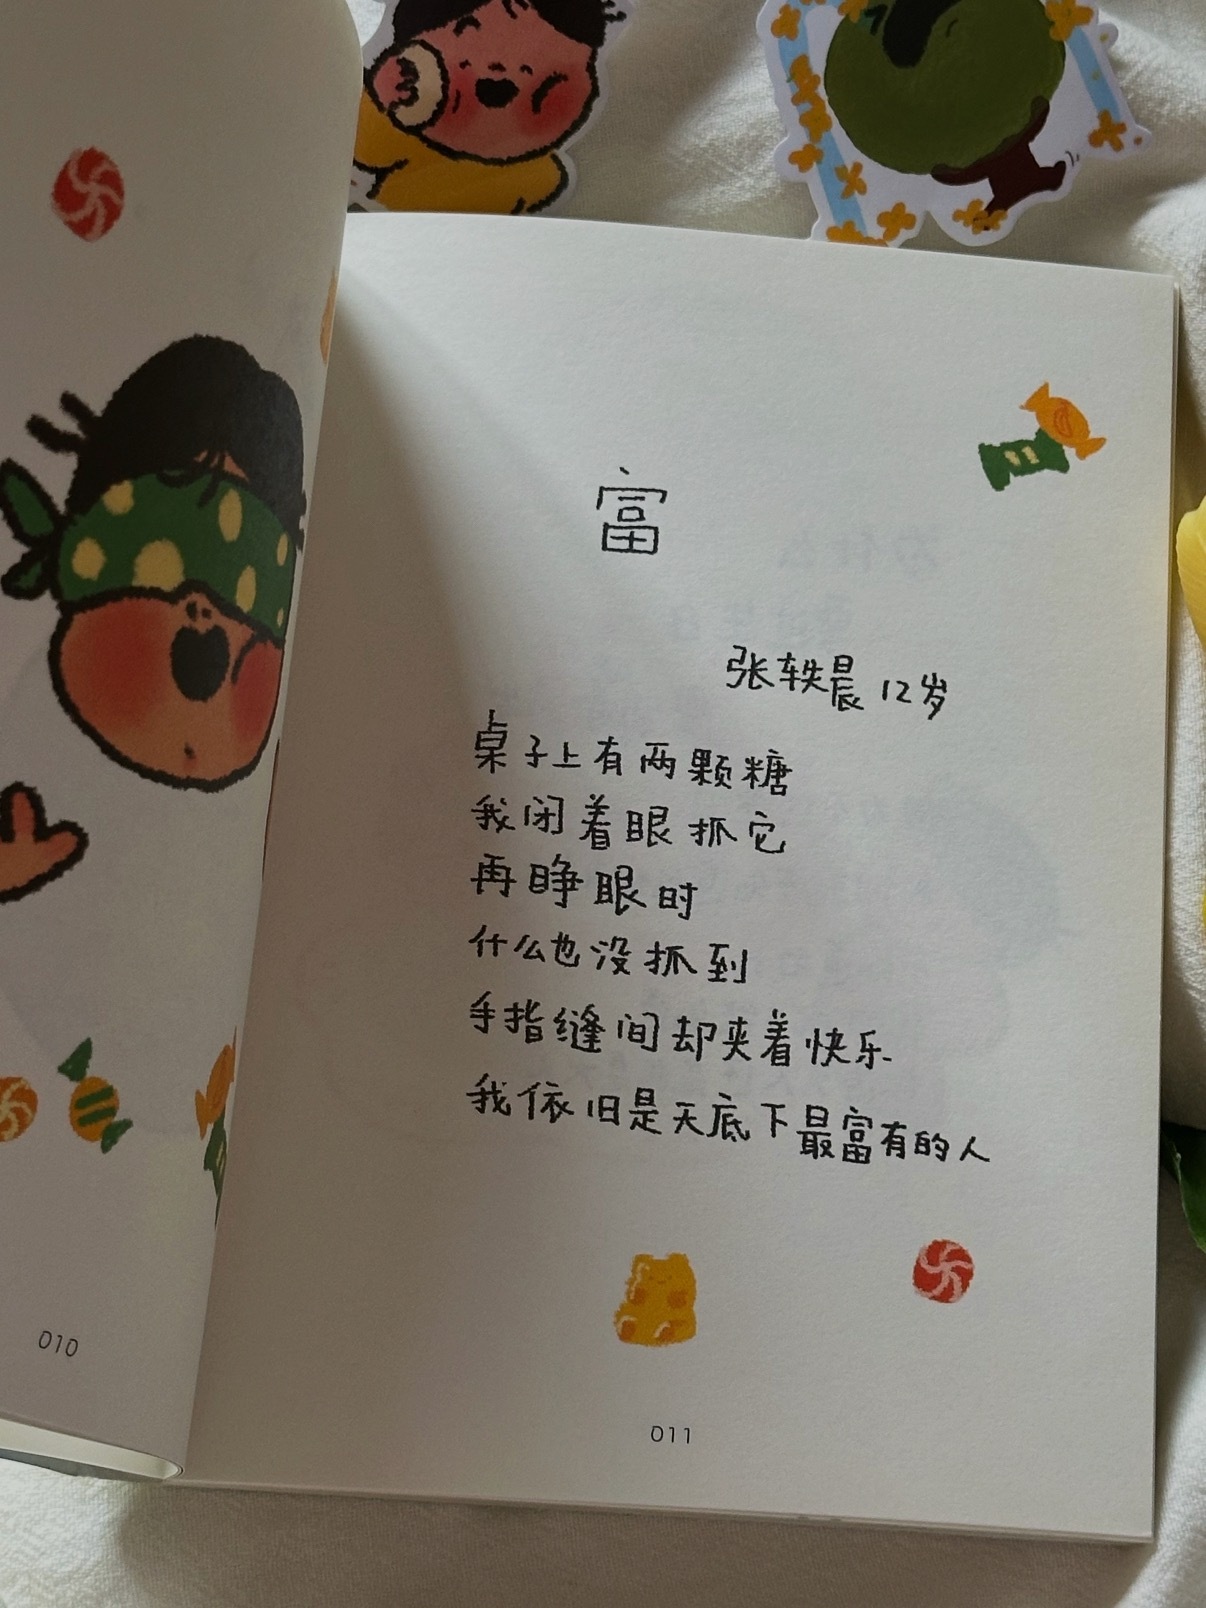 富
张轶晨 12岁
桌子上有两颗糖
我闭着眼抓它
再睁眼时
什么也没抓到
手指缝间却夹着快乐
我依旧是天底下最富有的人
010
011